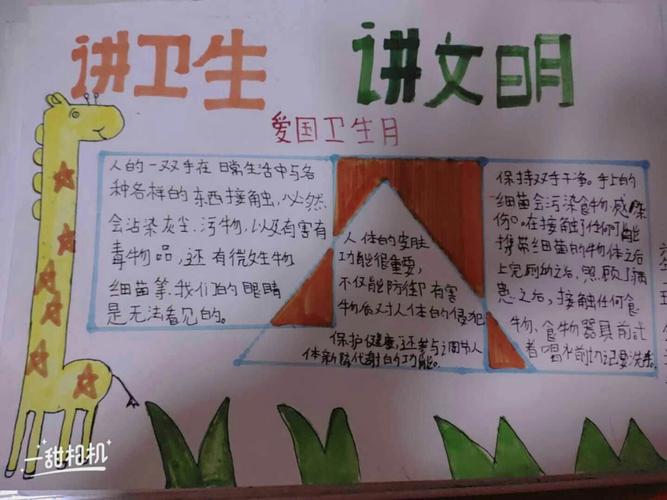 讲卫生 讲文明
爱国卫生月
人的一双手在日常生活中与各
种各样的东西接触,必然
会沾染灰尘、污物,以及有害有
毒物品,还有微生物
细菌等.我们的眼睛
是无法看见的。
人体的皮肤
功能很重要,
不仅能防御有害
物质对人体的侵犯
保护健康,还参与调节人
体新陈代谢的功能。
保持双手干净。手上的
细菌会污染食物,感染
伤口。在接触了任何可能
携带细菌的物体之后
上完厕所之后,照顾了病
患之后,接触任何食
物、食物器具前或
者喝水前切记要洗手。
一甜相机